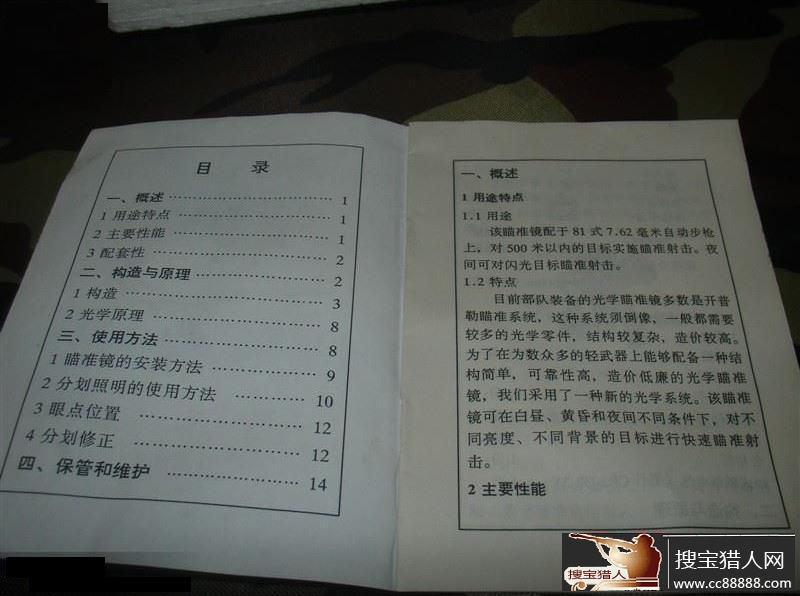 目 录
一、概述 ……………………… 1
1 用途特点 ……………………… 1
2 主要性能 ……………………… 1
3 配套性 ……………………… 2
二、构造与原理 ……………………… 2
1 构造 ……………………… 3
2 光学原理 ……………………… 8
三、使用方法 ……………………… 8
1 瞄准镜的安装方法 ……………… 9
2 分划照明的使用方法 ………… 10
3 眼点位置 ……………………… 12
4 分划修正 ……………………… 12
四、保管和维护 ……………… 14
一、概述
1 用途特点
1.1 用途
该瞄准镜配于 81 式 7.62 毫米自动步枪
上，对 500 米以内的目标实施瞄准射击。夜
间可对闪光目标瞄准射击。
1.2 特点
目前部队装备的光学瞄准镜多数是开普
勒瞄准系统，这种系统须倒像，一般都需要
较多的光学零件，结构较复杂，造价较高。
为了在为数众多的轻武器上能够配备一种结
构简单，可靠性高，造价低廉的光学瞄准
镜，我们采用了一种新的光学系统。该瞄准
镜可在白昼、黄昏和夜间不同条件下，对不
同亮度、不同背景的目标进行快速瞄准射
击。
2 主要性能
搜宝猎人
搜宝猎人网
www.cc88888.com